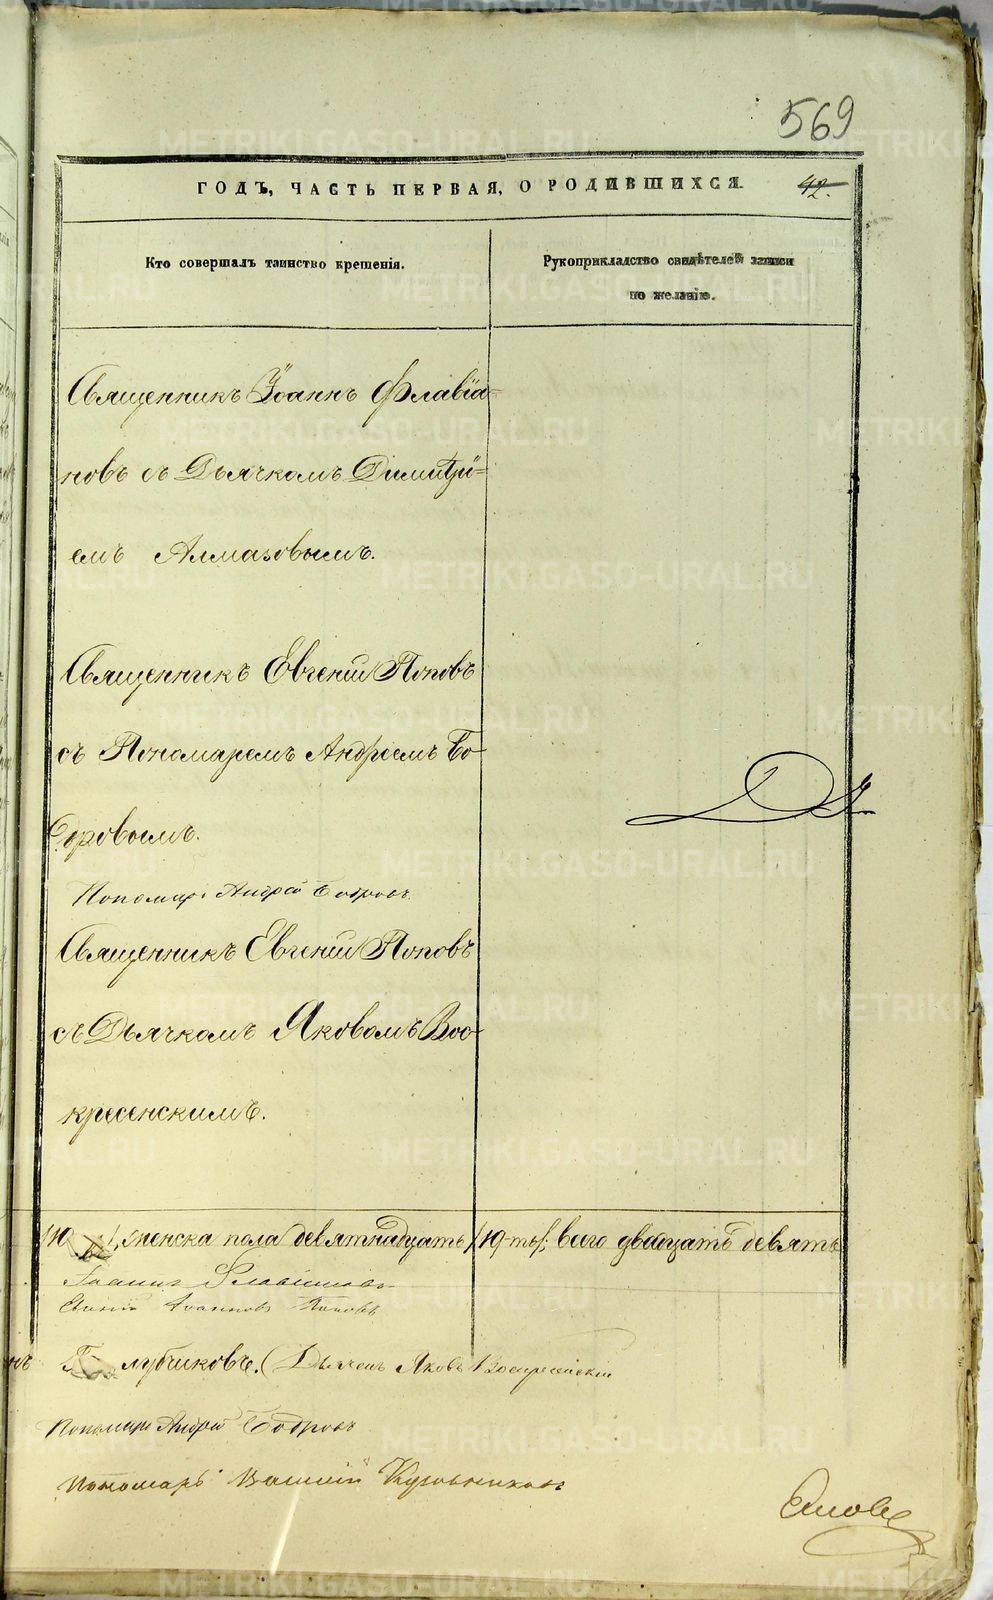 569
ГОДЪ, ЧАСТЬ ПЕРВАЯ, О РОДИВШИХСЯ.
42.
Кто совершалъ таинство крещенія.
Рукоприкладство свидѣтелей записи
по желанію.
Священникъ Іоаннъ Флавіа-
новъ съ Дьячкомъ Димитрі-
емъ Алмазовымъ.
Священникъ Евгеній Поповъ
съ Пономаремъ Андреемъ Бо-
дровымъ.
Пономарь Андрей Бодровъ
Священникъ Евгеній Поповъ
съ Дьячкомъ Яковомъ Вос-
кресенскимъ.
женска пола девятнадцать /19-ть/, всего двадцать девять
Іоаннъ Флавіановъ
Іоанновъ Поповъ
Дьячекъ Яковъ Воскресенскій
Пономарь Андрей Бодровъ
Пономарь Василій
METRIKI.GASO-URAL.RU